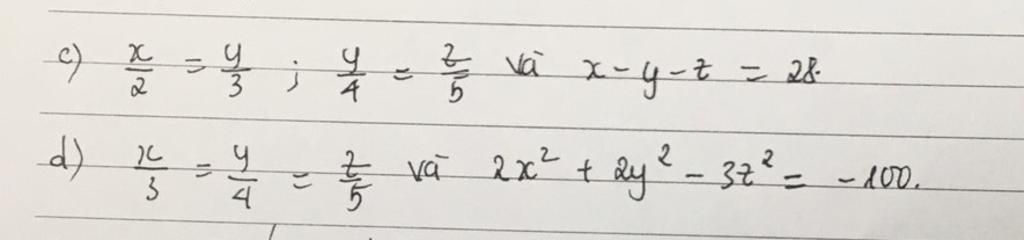 c) x/2 = y/3 ; y/4 = z/5 và x - y - z = 28.
d) x/3 = y/4 = z/5 và 2x² + 2y² - 3z² = -100.